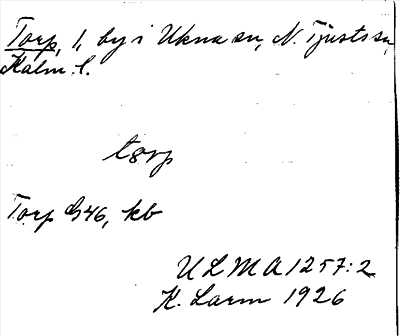 Torp, 1, by i Ukna sn, N. Tjusts hd,
Kalm. l.
torp
Torp G46, kb
ULMA 1257:2
K. Larm 1926